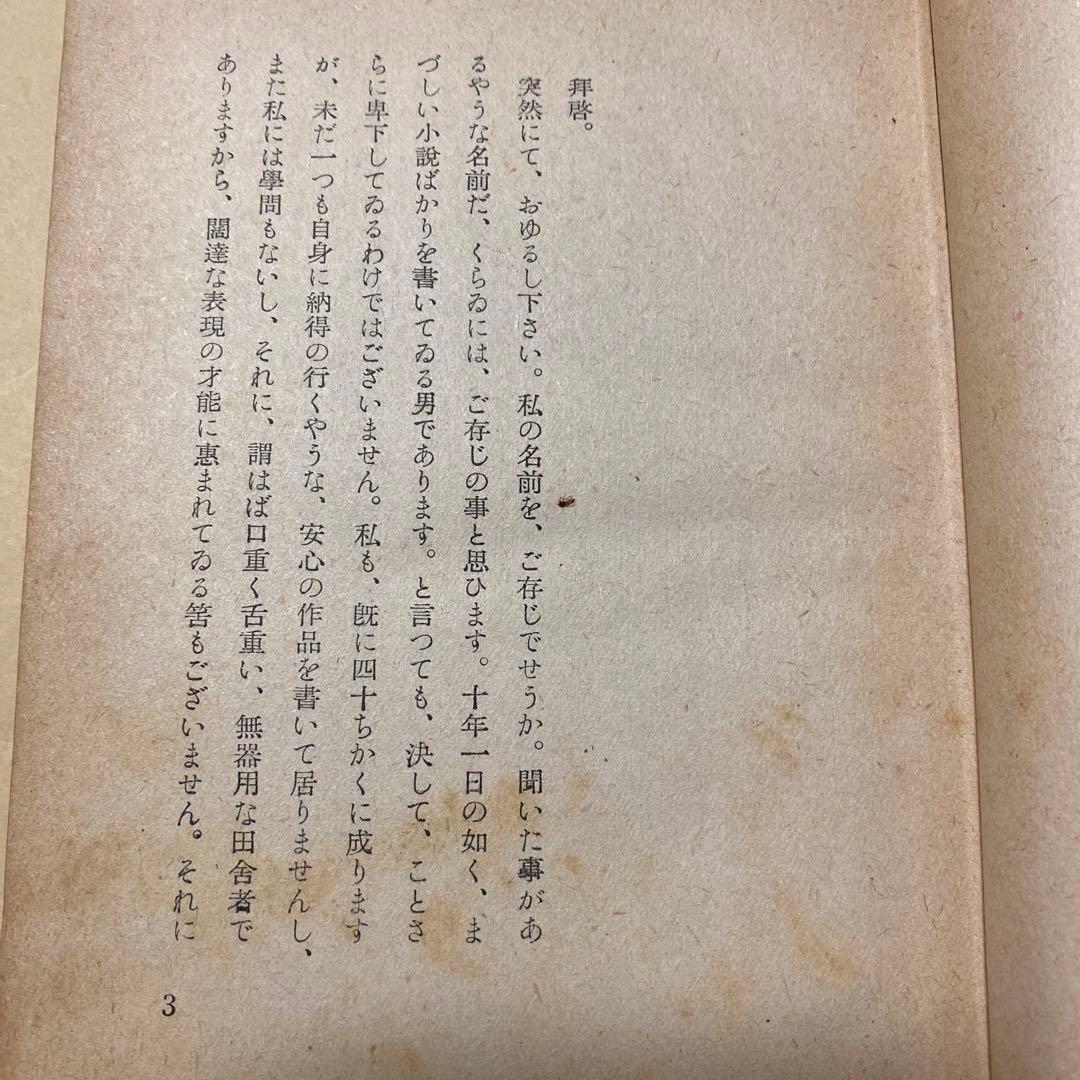 拜啓。
突然にて、おゆるし下さい。私の名前を、ご存じでせうか。聞いた事があ
るやうな名前だ、くらゐには、ご存じの事と思ひます。十年一日の如く、ま
づしい小說ばかりを書いてゐる男であります。と言つても、決して、ことさ
らに卑下してゐるわけではございません。私も、既に四十ちかくに成ります
が、未だ一つも自身に納得の行くやうな、安心の作品を書いて居りませんし、
また私には學問もないし、それに、謂はば口重く舌重い、無器用な田舍者で
ありますから、闊達な表現の才能に惠まれてゐる筈もございません。それに
3